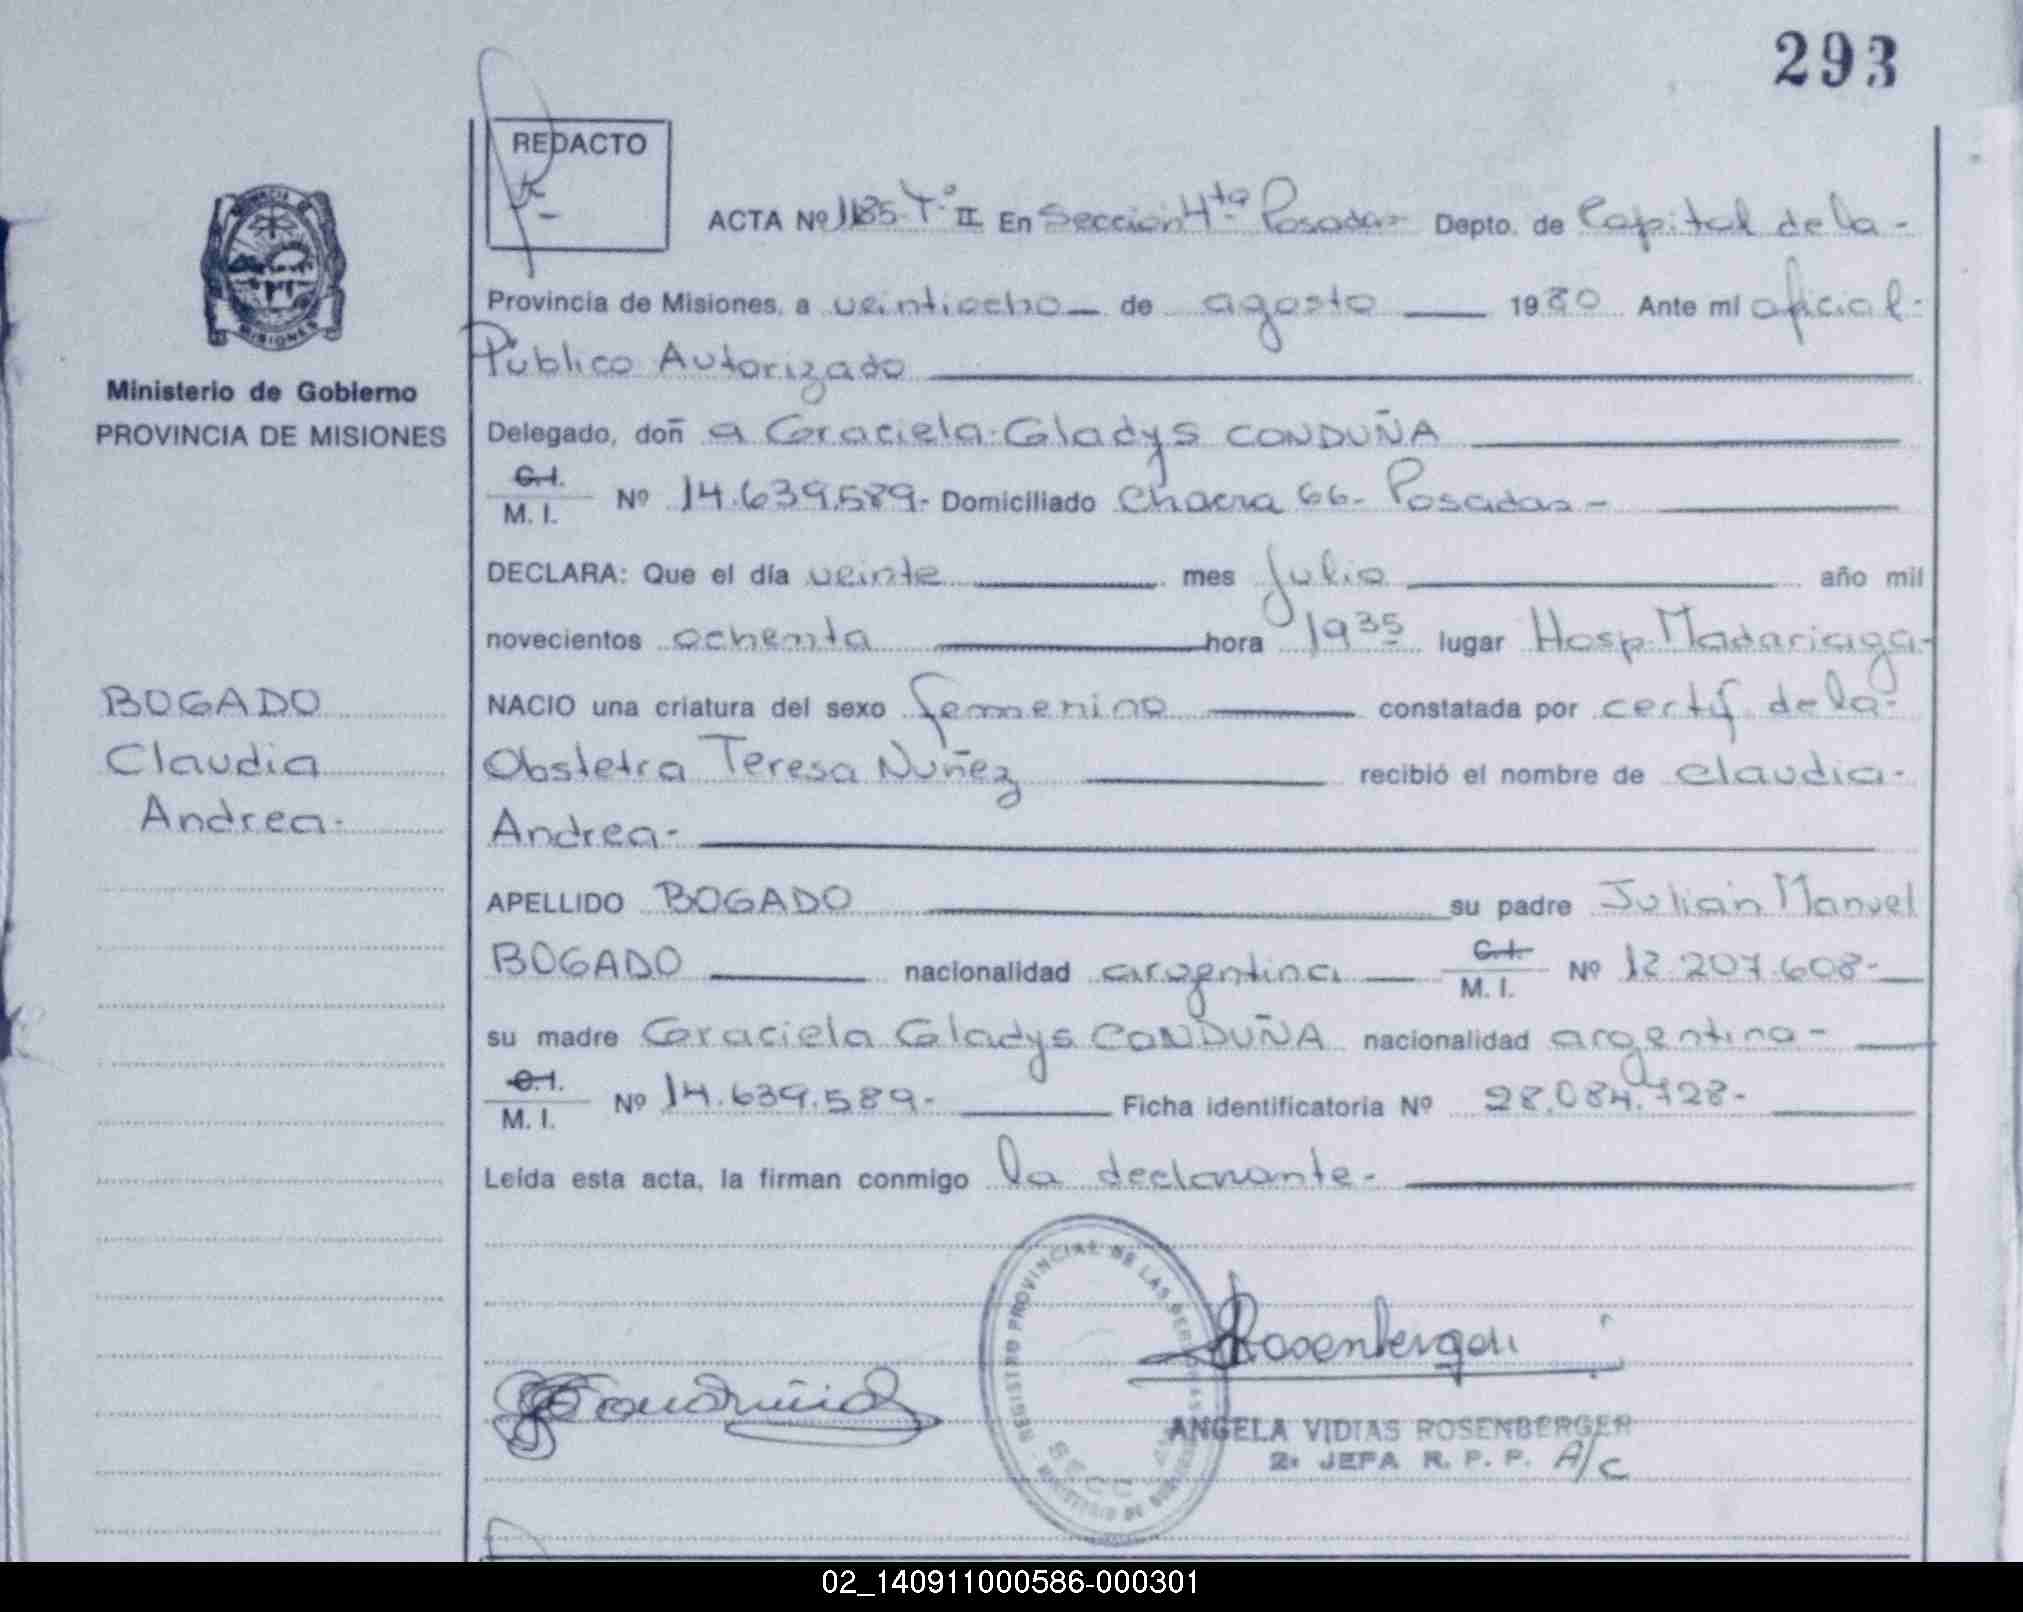 293
REDACTO
ACTA Nº 1185 Tº II En Sección 4ta Posadas Depto. de Capital de la -
Provincia de Misiones, a veintiocho de agosto 1980 Ante mí oficial -
Público Autorizado
Ministerio de Gobierno
PROVINCIA DE MISIONES
Delegado, doñ a Graciela Gladys CONDUÑA
C.I.
M. I. Nº 14.639.589.- Domiciliado Chacra 66.- Posadas -
DECLARA: Que el día veinte mes Julio año mil
novecientos ochenta hora 19 35 lugar Hosp. Madariaga -
BOGADO
Claudia
Andrea -
NACIO una criatura del sexo femenino constatada por certif. de la -
Obstetra Teresa Nuñez recibió el nombre de Claudia -
Andrea -
APELLIDO BOGADO su padre Julián Manuel
BOGADO nacionalidad argentina C.I. M. I. Nº 12.207.608 -
su madre Graciela Gladys CONDUÑA nacionalidad argentina -
C.I.
M. I. Nº 14.639.589 - Ficha identificatoria Nº 28.084.728 -
Leída esta acta, la firman conmigo la declarante -
REGISTRO PROVINCIAL DE LAS PERSONAS
SECC
ANGELA VIDIAS ROSENBERGER
2º JEFA R. P. P. A/C
02_140911000586-000301